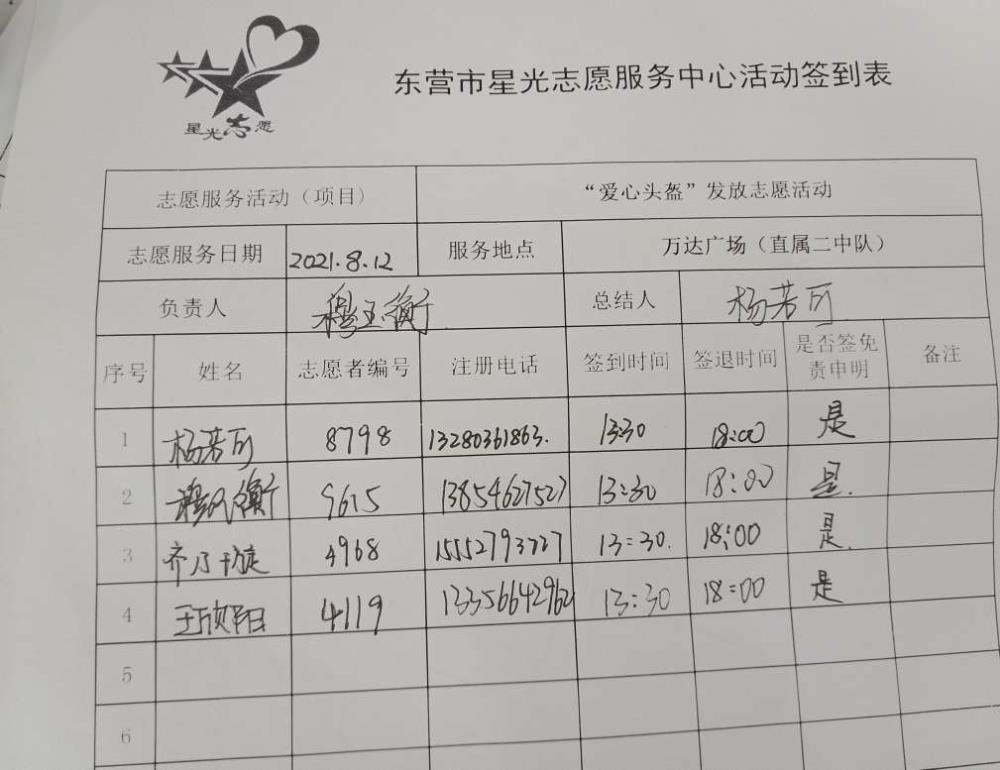 星光志愿
东营市星光志愿服务中心活动签到表
志愿服务活动（项目） “爱心头盔”发放志愿活动
志愿服务日期 2021.8.12 服务地点 万达广场（直属二中队）
负责人 穆玉衡 总结人 杨若可
序号 姓名 志愿者编号 注册电话 签到时间 签退时间 是否签免责申明 备注
1 杨若可 8798 13280361863. 13:30 18:00 是
2 穆玉衡 9615 13854627527 13:30 18:00 是.
3 齐乃璇 4968 15552793727 13:30. 18:00 是.
4 王欣阳 4119 13356642962 13:30 18:00 是
5
6